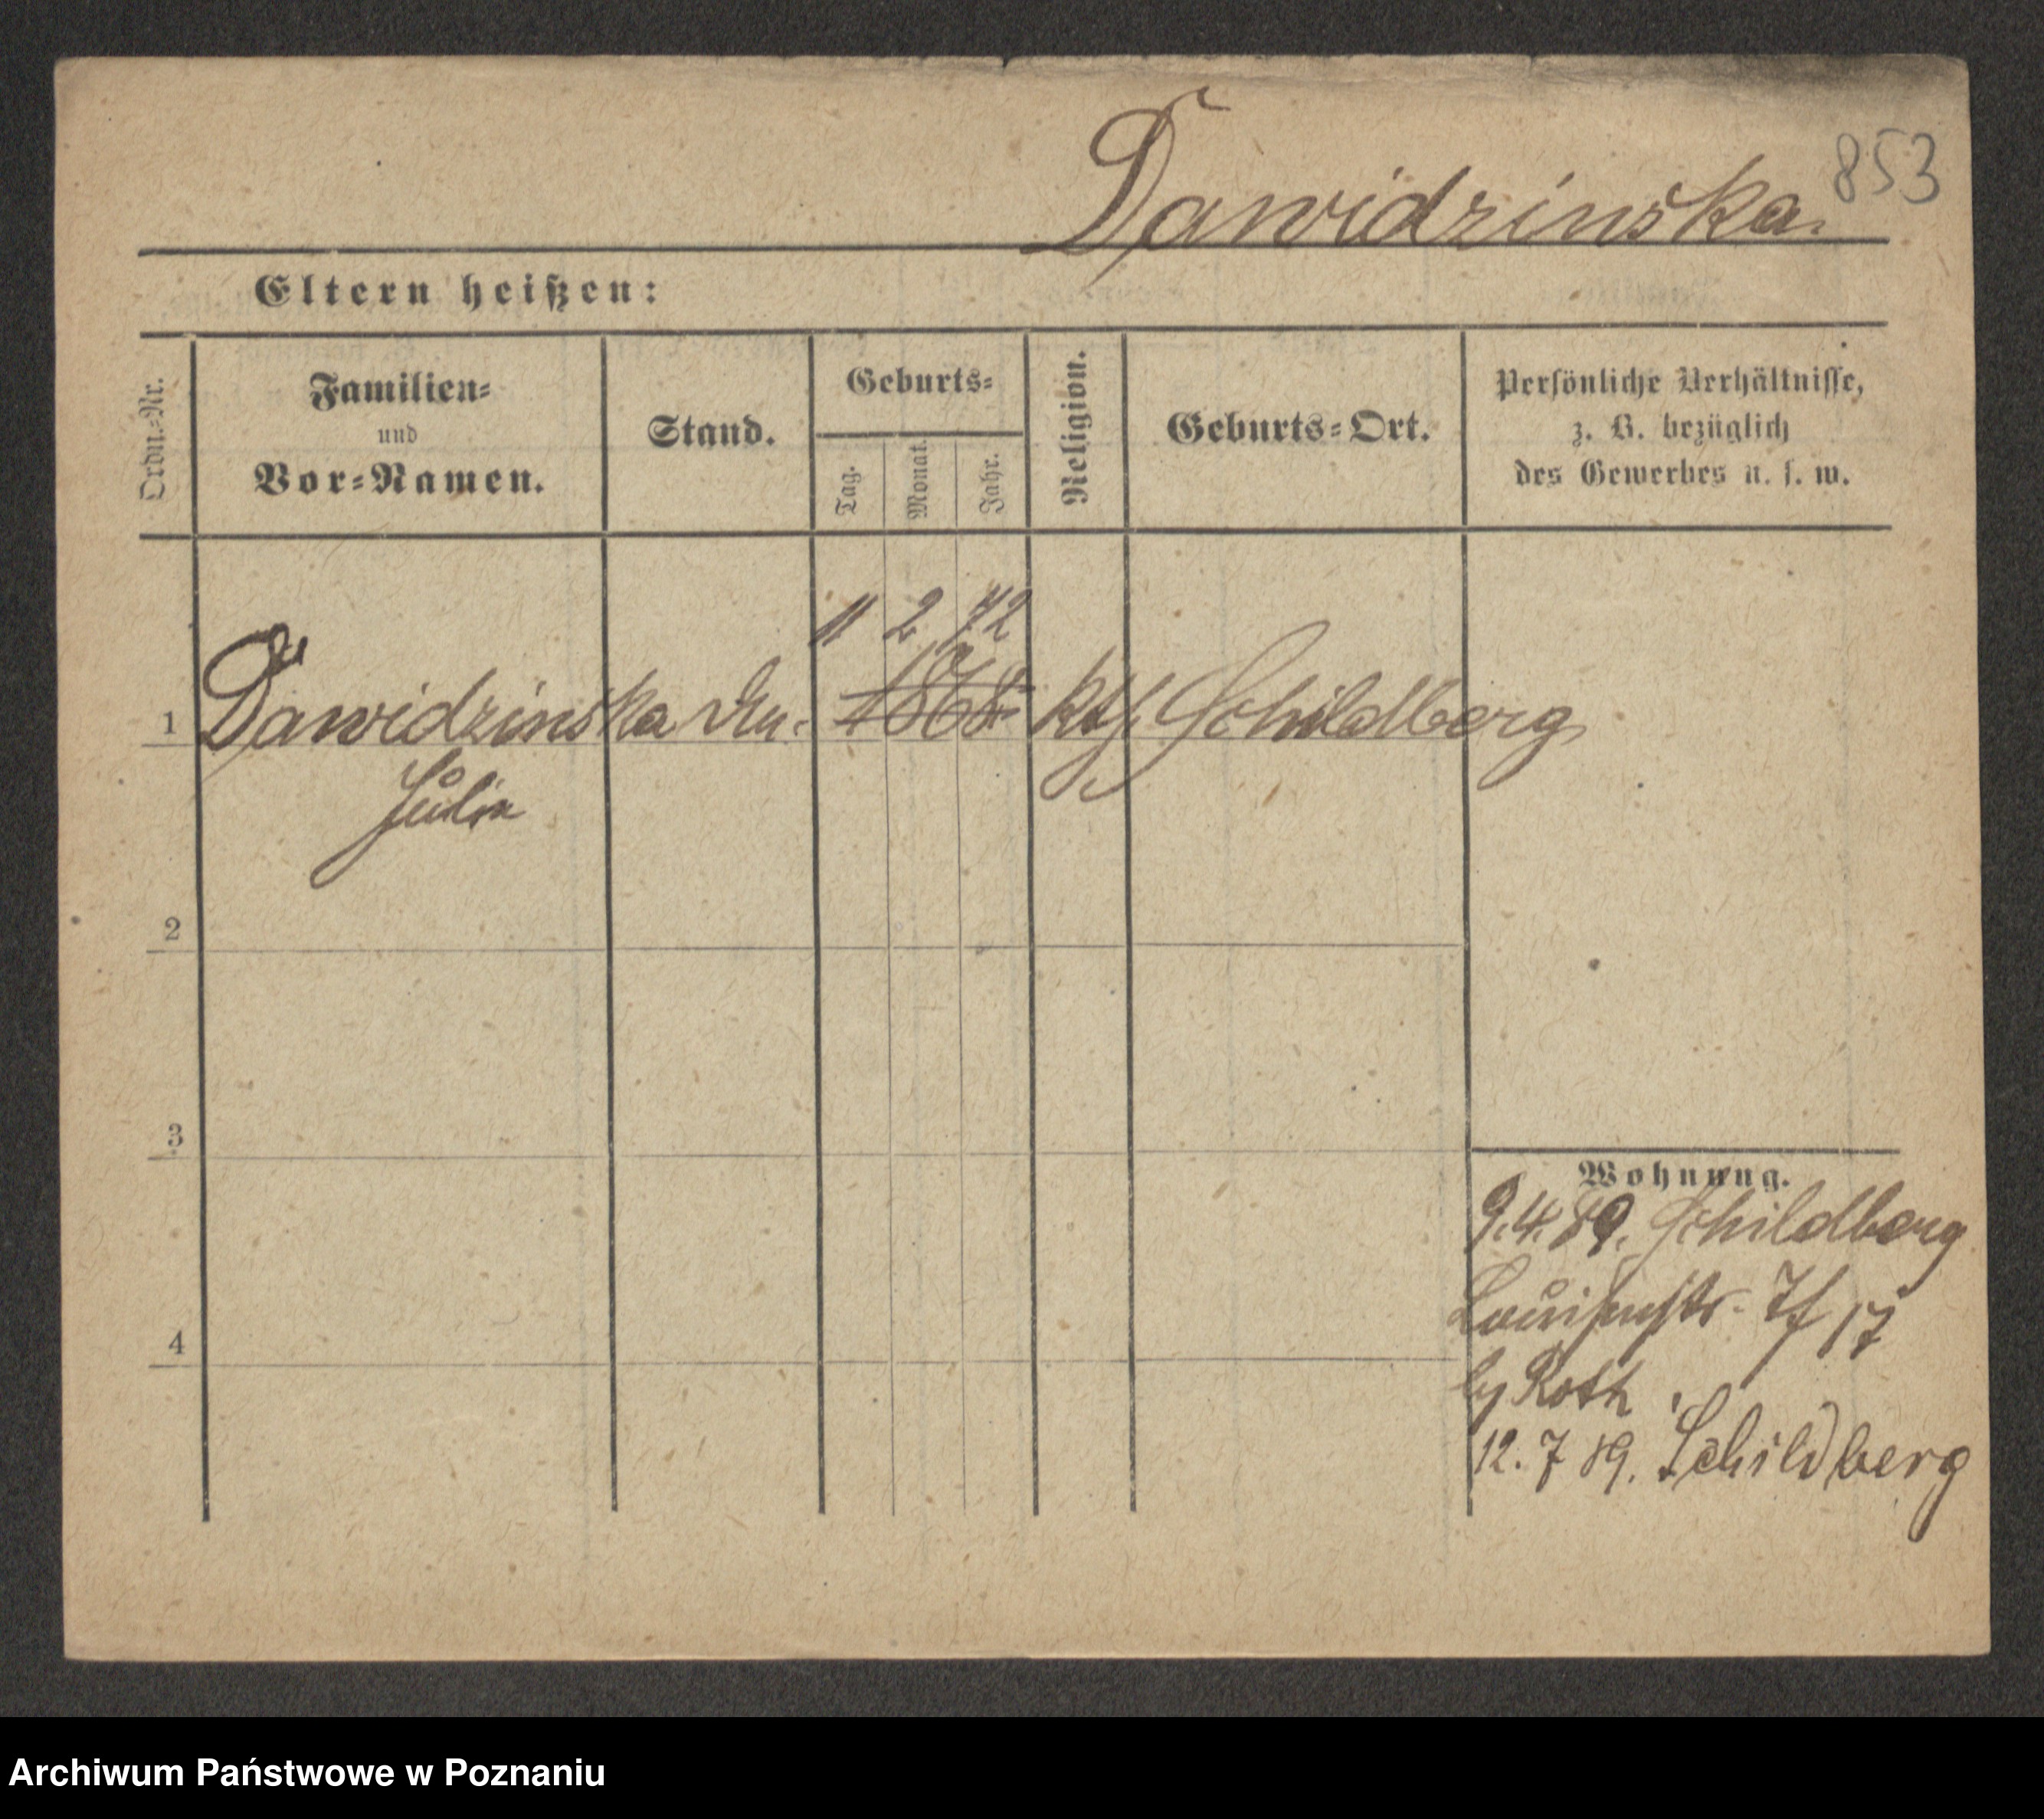 853
Dawidzinska.
Eltern heißen:
Ordn.-Nr.
Familien-
und
Vor-Namen.
Stand.
Geburts-
Tag.
Monat.
Jahr.
Religion.
Geburts-Ort.
Persönliche Verhältnisse,
z. B. bezüglich
des Gewerbes u. s. w.
11 2 72
1 Dawidzinska 1868 kth Schildberg
Julia
2
3
4
Wohnung.
9.4.89. Schildberg
Louisenstr. 7f
by Roth
12.7 89. Schildberg
Archiwum Państwowe w Poznaniu